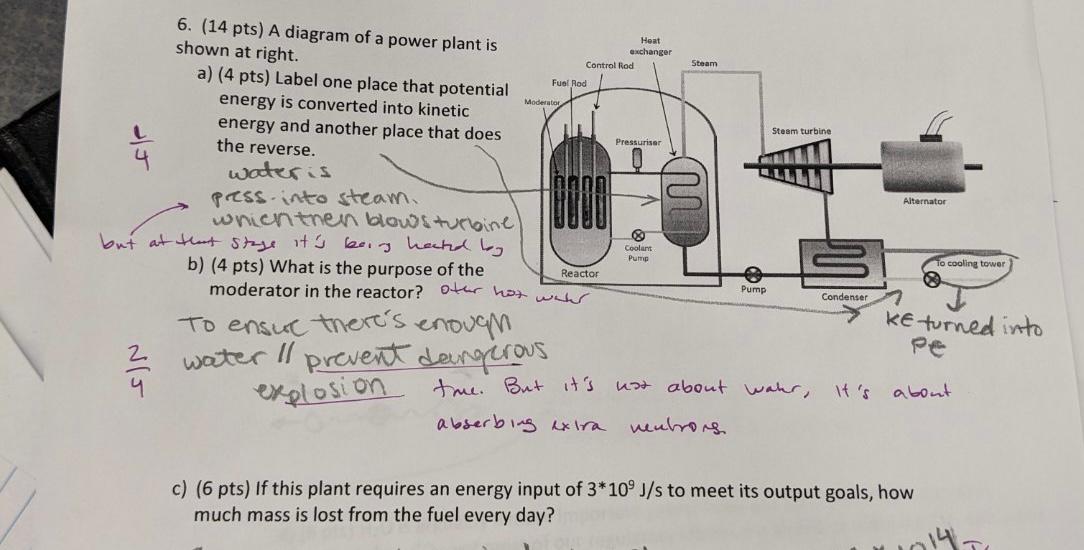 6. (14 pts) A diagram of a power plant is
shown at right.
a) (4 pts) Label one place that potential
energy is converted into kinetic
energy and another place that does
the reverse.
1/4
water is
press. into steam.
which then blows turbine
but at that stage it's being heated by
other hot water
b) (4 pts) What is the purpose of the
moderator in the reactor?
To ensure there's enough
water // prevent dangerous
explosion
2/4
true. But it's not about water, It's about
absorbing extra neutrons.
Heat
exchanger
Control Rod
Steam
Fuel Rod
Moderator
Pressuriser
Steam turbine
Alternator
Coolant
Pump
Reactor
Pump
Condenser
To cooling tower
KE turned into
PE
c) (6 pts) If this plant requires an energy input of 3*10⁹ J/s to meet its output goals, how
much mass is lost from the fuel every day?